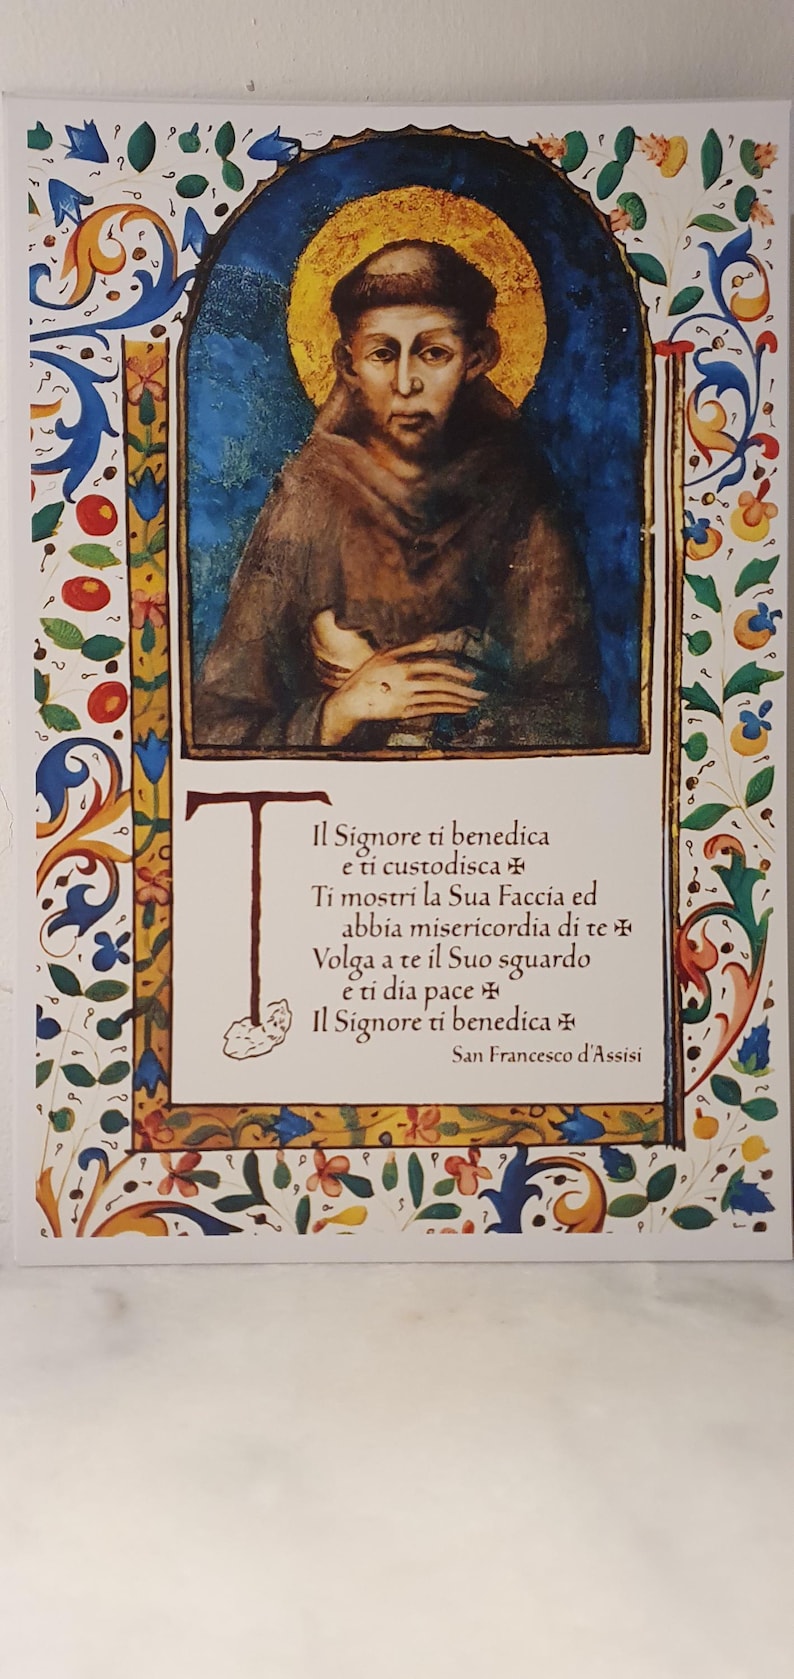 Il Signore ti benedica
e ti custodisca ✠
Ti mostri la Sua Faccia ed
abbia misericordia di te ✠
Volga a te il Suo sguardo
e ti dia pace ✠
Il Signore ti benedica ✠
San Francesco d'Assisi